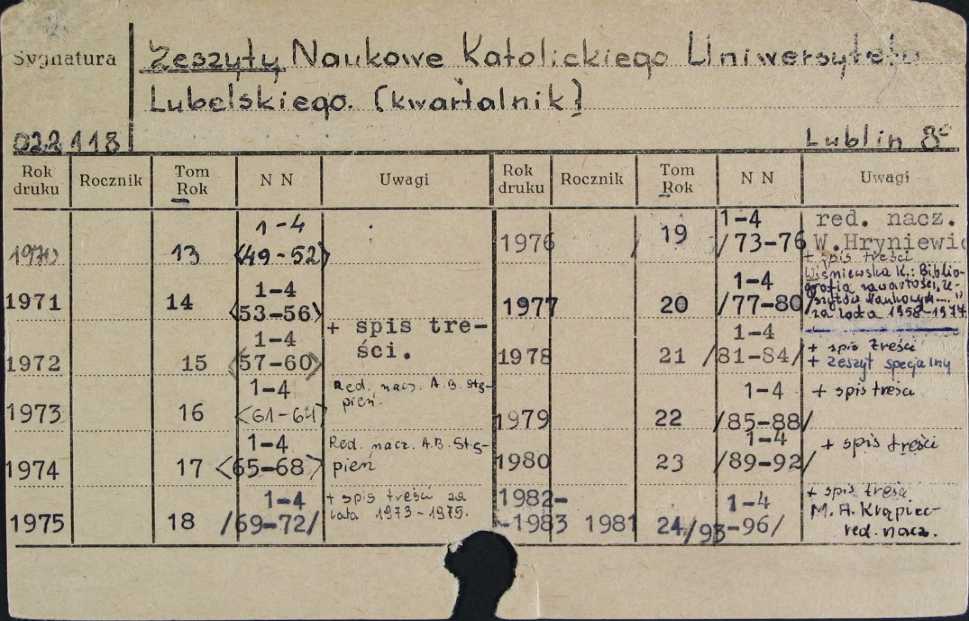 Sygnatura
Zeszyty Naukowe Katolickiego Uniwersytetu
Lubelskiego. (kwartalnik)
022118
Lublin 8°
Rok druku Rocznik Tom Rok N N Uwagi Rok druku Rocznik Tom Rok N N Uwagi
1970 13 1-4 <49-52>
1971 14 1-4 <53-56>
+ spis tre-
ści.
1972 15 1-4 <57-60>
1973 16 1-4 <61-64>
Red. nacz. A.B. Stę-
pień.
1974 17 1-4 <65-68>
Red. nacz. A.B. Stę-
pień
1975 18 1-4 /69-72/
+ spis treści za
lata 1973-1975.
1976 19 1-4 /73-76
red. nacz.
W.Hryniewic
+ spis treści
1977 20 1-4 /77-80/
Wiśniewska K.: Biblio-
grafia zawartości "Ze-
szytów Naukowych..."
za lata 1958-1977
1978 21 1-4 /81-84/
+ spis treści
+ zeszyt specjalny
1979 22 1-4 /85-88/
+ spis treści
1980 23 1-4 /89-92/
+ spis treści
1982-
-1983 1981 24 1-4 /93-96/
+ spis treści
M. A. Krąpiec-
red. nacz.